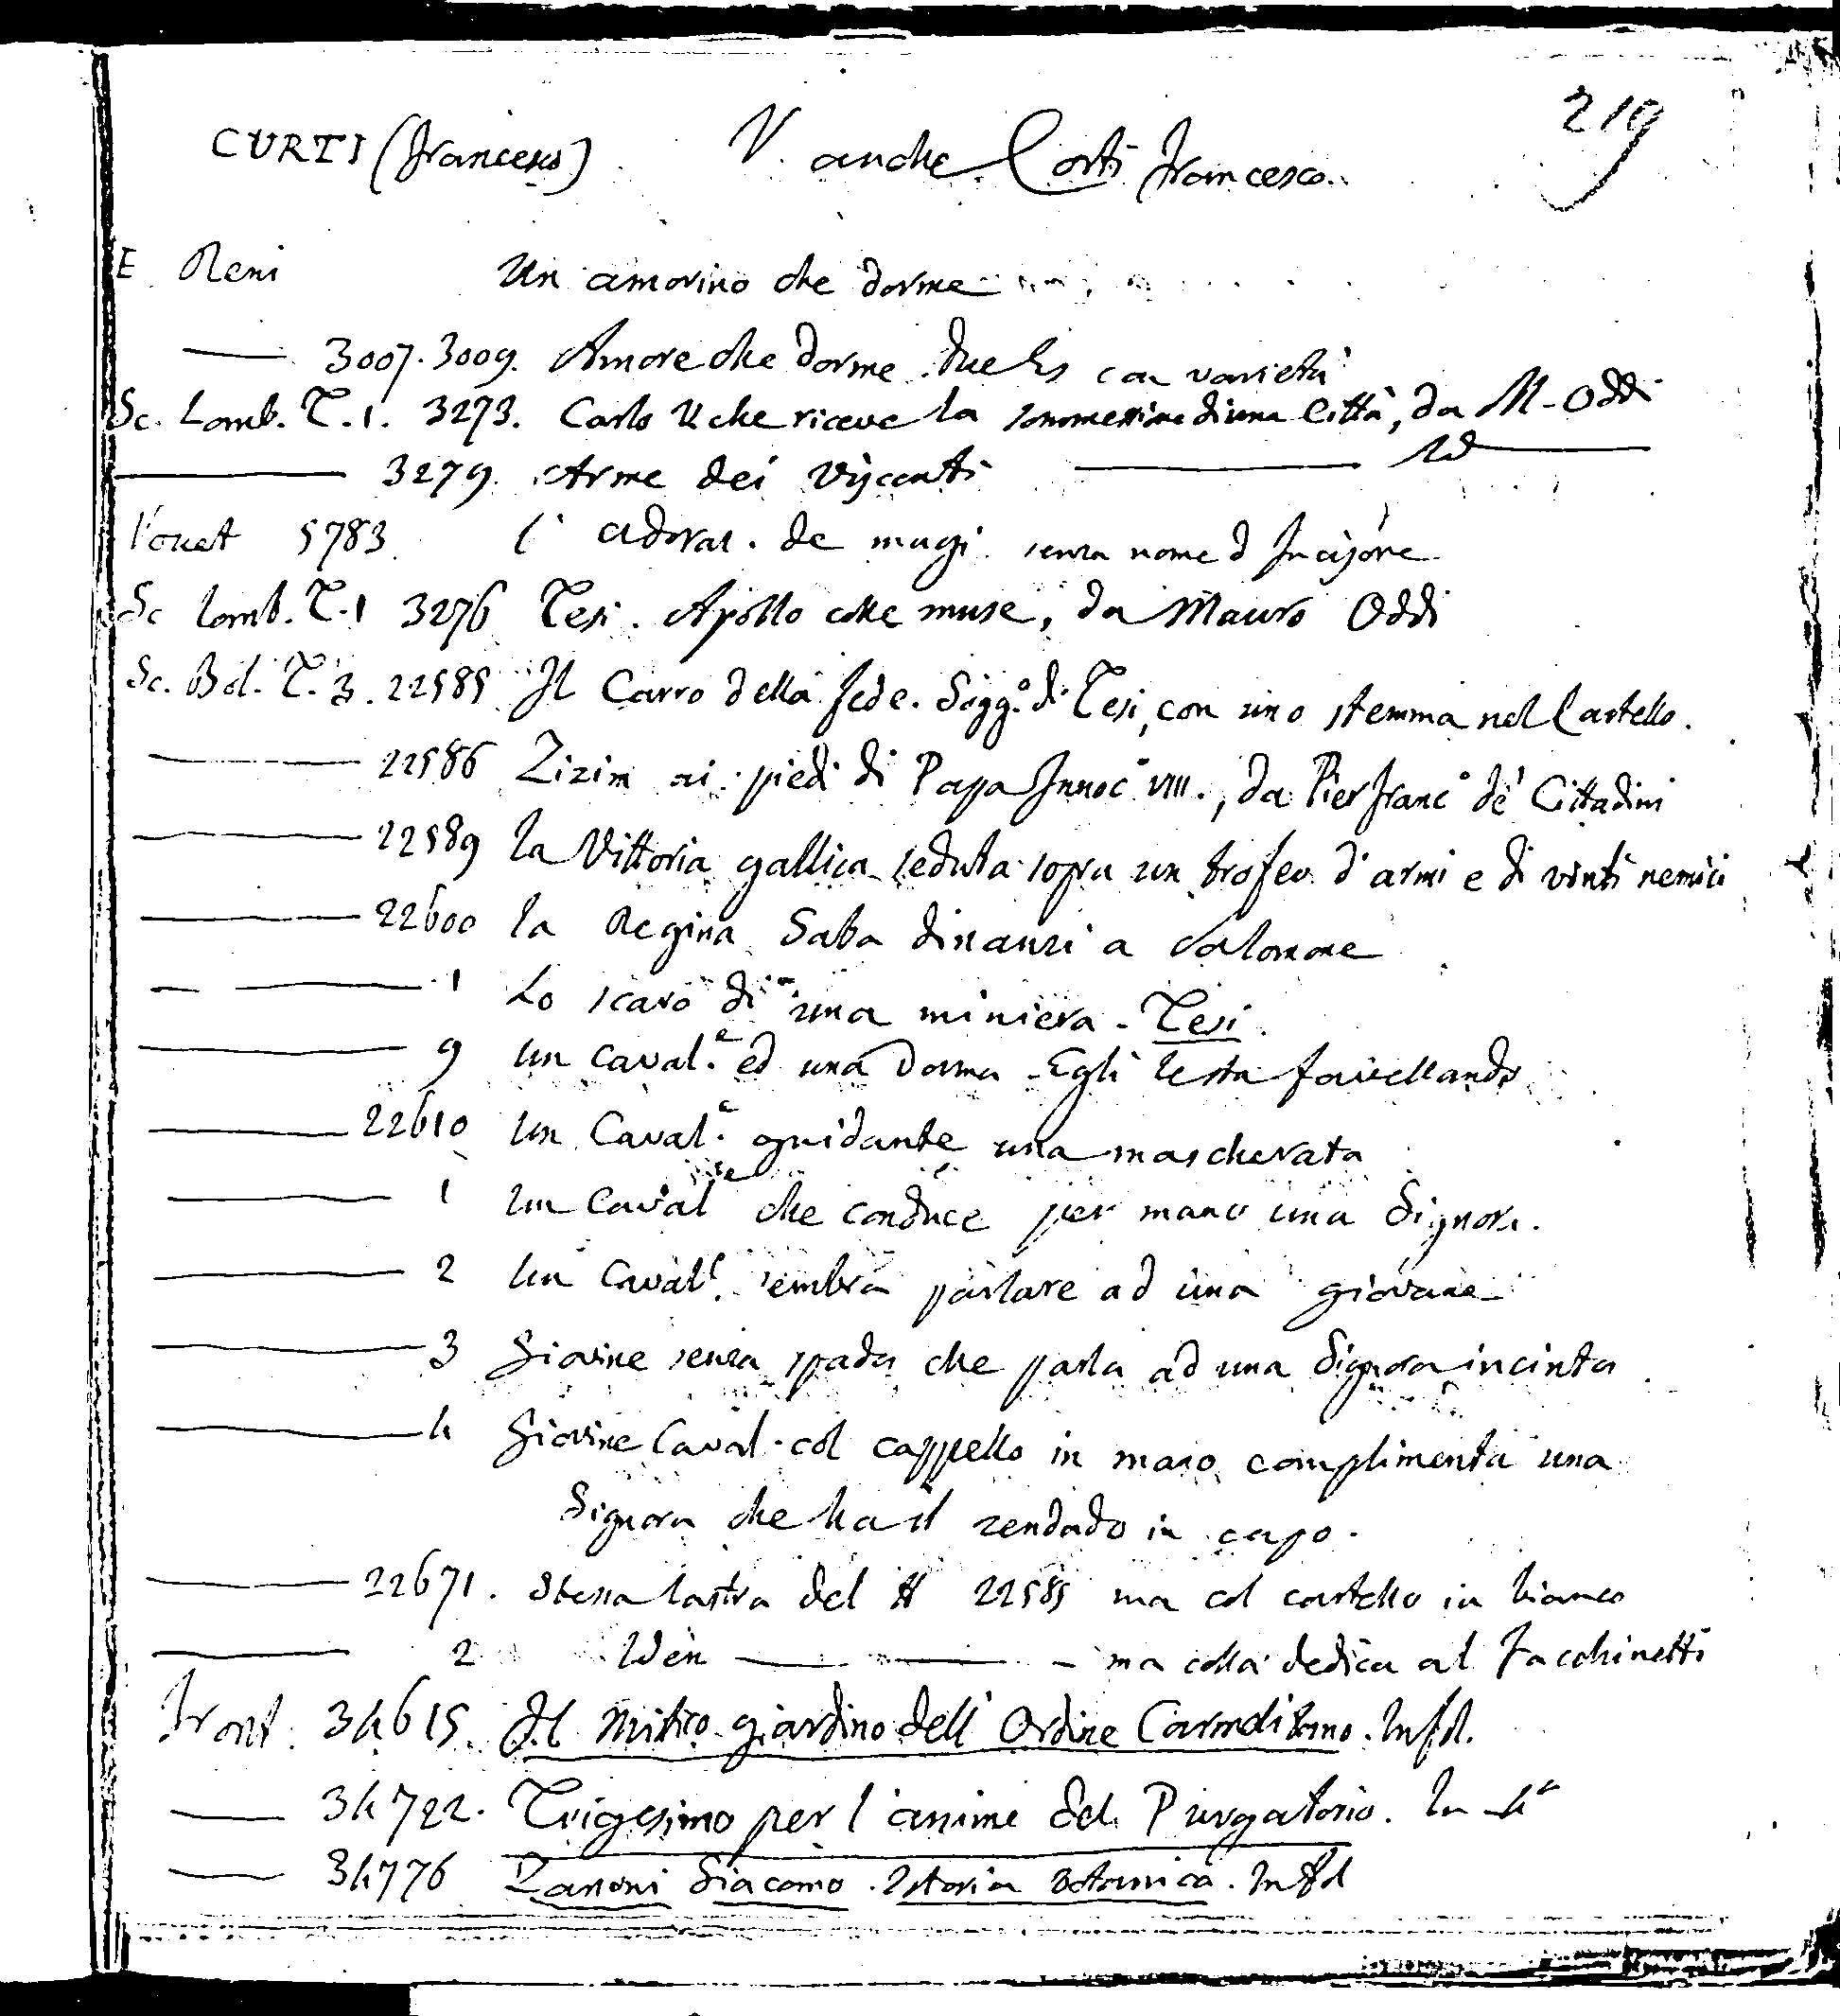 219
CURTI (Francesco) V. anche Corti Francesco.
E Reni Un amorino che dorme
—— 3007. 3009. Amore che dorme. due Es con varietà
Sc. Lomb. T. 1. 3273. Carlo V che riceve la sommessione di una Città, da M. Oddi
—— 3279. Arme dei Visconti —— Id ——
Vouet 5783 L' adoraz. de magi senza nome d Incisore
Sc Lomb. T. 1 3276 Tesi. Apollo colle muse, da Mauro Oddi
Sc. Bol. T. 3. 22585 Il Carro della fede. Sogg.o di Tesi, con uno stemma nel Cartello.
—— 22586 Zizim ai piedi di Papa Innoc.o VIII., da Pier Franc.o de' Cittadini
—— 22589 la Vittoria gallica seduta sopra un trofeo d'armi e di vinti nemici
—— 22600 la Regina Saba dinanzi a Salomone
—— 1 Lo scavo di una miniera - Tesi.
—— 9 un caval.e ed una Donna - Egli resta favellando
—— 22610 un Caval.e guidante una mascherata
—— 1 un Caval.re che conduce per mano una Signora.
—— 2 un Caval.e sembra parlare ad una giovane
—— 3 Giovine senza spada che parla ad una Signora incinta
—— 4 Giovine Caval. col cappello in mano complimenta una
Signora che ha il zendado in capo.
—— 22671. Stessa lastra del N 22585 ma col cartello in bianco
—— 2 Idem —— —— - ma colla dedica al Facchinetti
Front. 34615. Il Mistico giardino dell' Ordine Carmelitano. In fol.
—— 34722. Trigesimo per l'anime del Purgatorio. In 4°
—— 34776 Zanoni Giacomo. Istoria Botanica. In fol